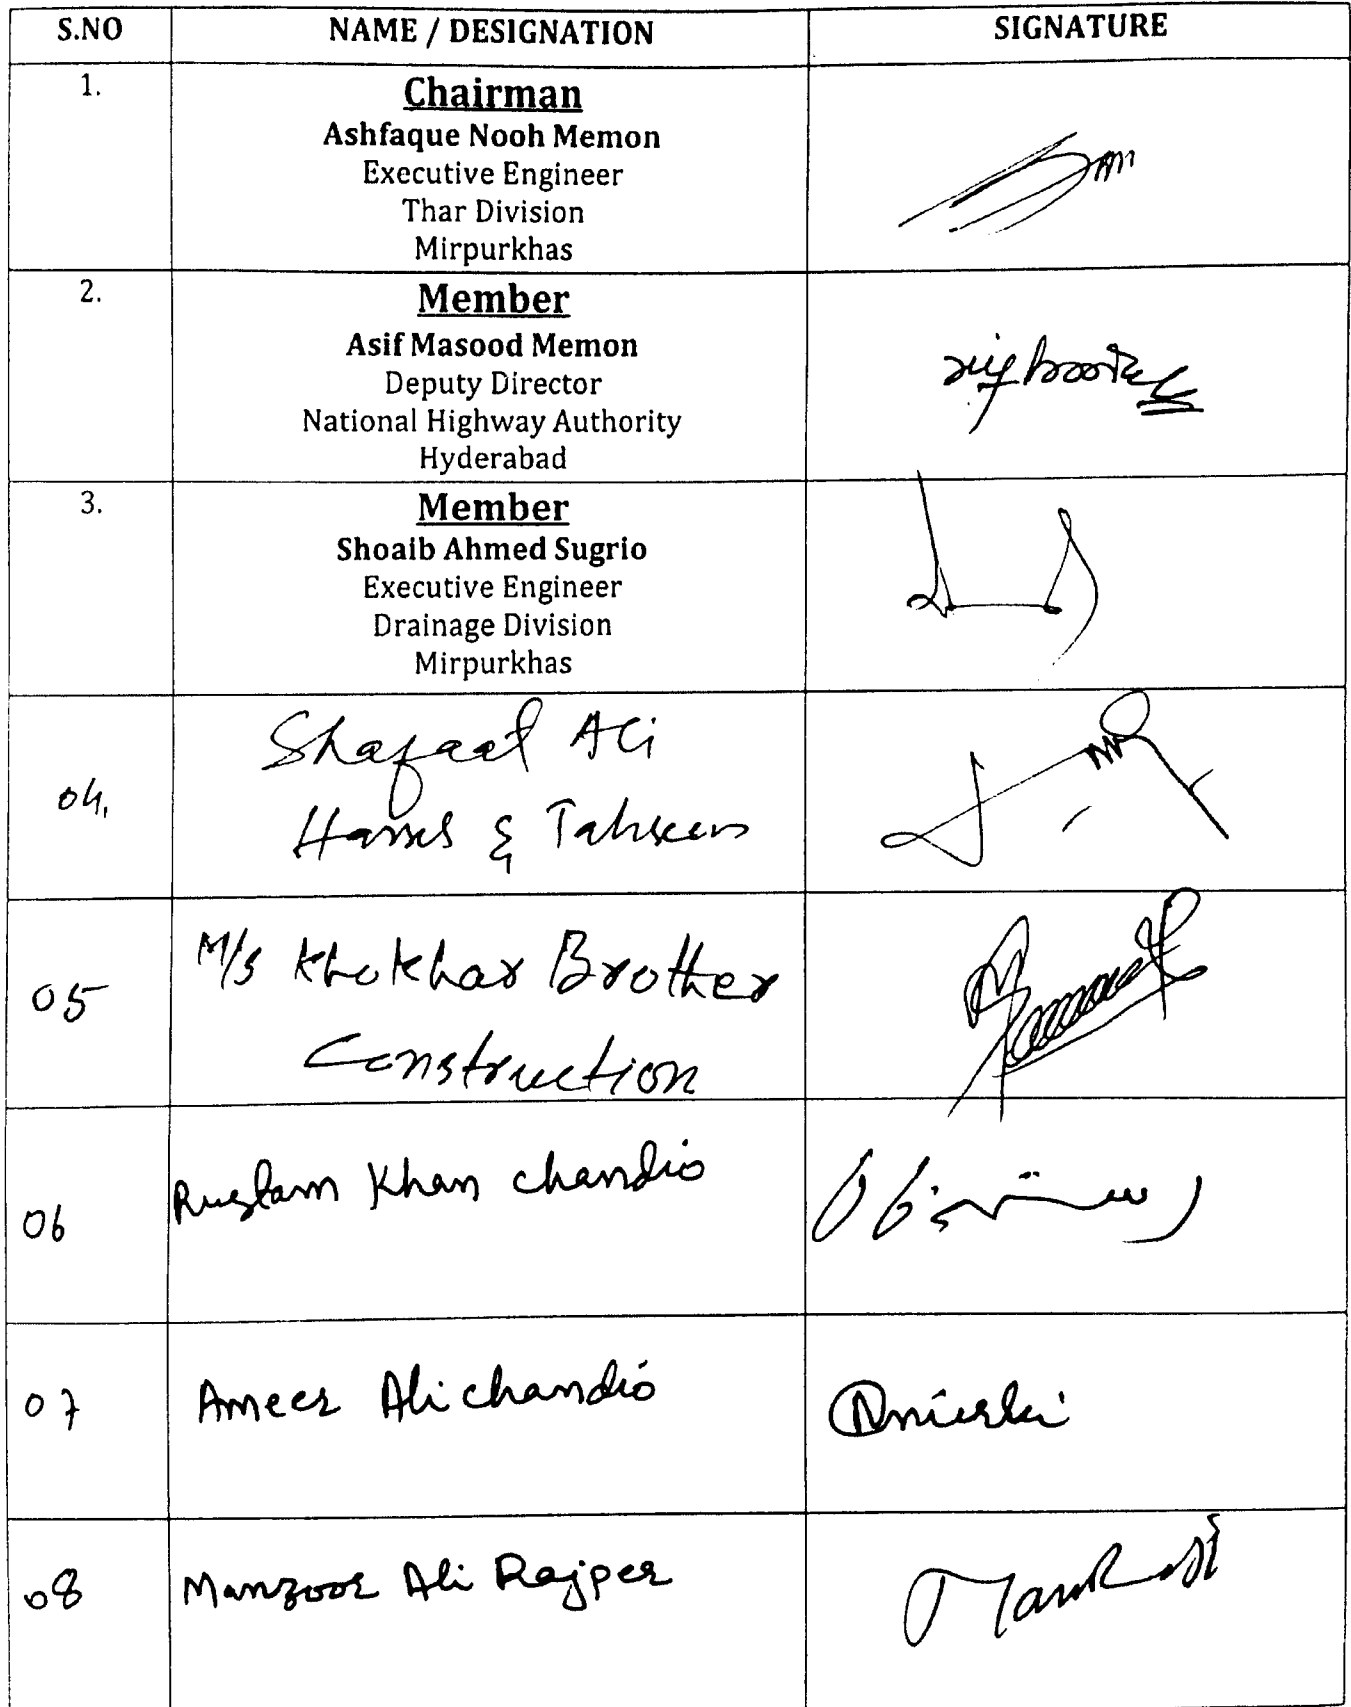 S.NO NAME / DESIGNATION SIGNATURE
1. Chairman
Ashfaque Nooh Memon
Executive Engineer
Thar Division
Mirpurkhas
2. Member
Asif Masood Memon
Deputy Director
National Highway Authority
Hyderabad
3. Member
Shoaib Ahmed Sugrio
Executive Engineer
Drainage Division
Mirpurkhas
04. Shafaat Ali
& Tahseen
05 M/s Khokhar Brother
Construction
06 Rustam Khan chandio
07 Ameer Ali chandio
08 Manzoor Ali Rajper